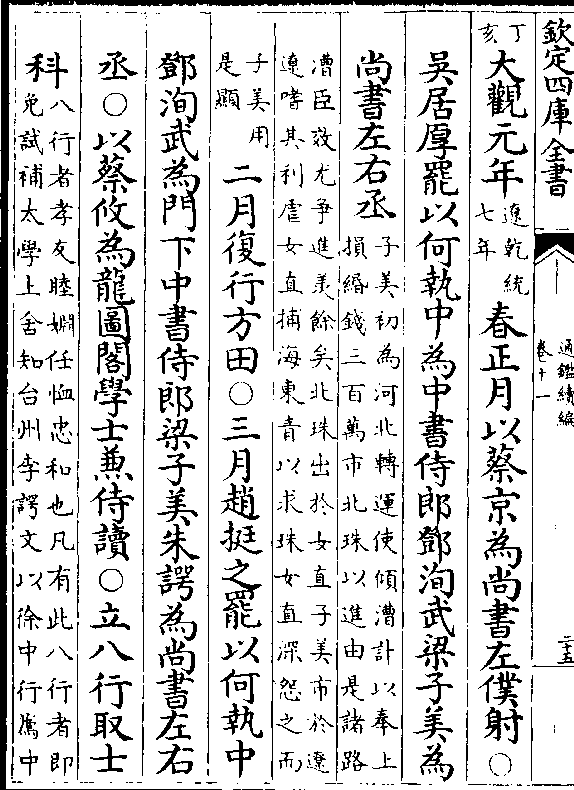 欽定四庫全書
通鑑續編
卷十一
二十五
丁
亥
大觀元年
遼乾統
七年
春正月以蔡京為尚書左僕射○
吳居厚罷以何執中為中書侍郎鄧洵武梁子美為
尚書左右丞
子美初為河北轉運使傾漕計以奉上
損緡錢三百萬市北珠以進由是諸路
漕臣效尤爭進羨餘矣北珠出於女直子美市於遼
遼嗜其利虐女直捕海東青以求珠女直深怨之而
子美用
是顯
二月復行方田○三月趙挺之罷以何執中
鄧洵武為門下中書侍郎梁子美朱諤為尚書左右
丞○以蔡攸為龍圖閣學士兼侍讀○立八行取士
科
八行者孝友睦婣任恤忠和也凡有此八行者即
免試補太學上舍知台州李諤文以徐中行薦中